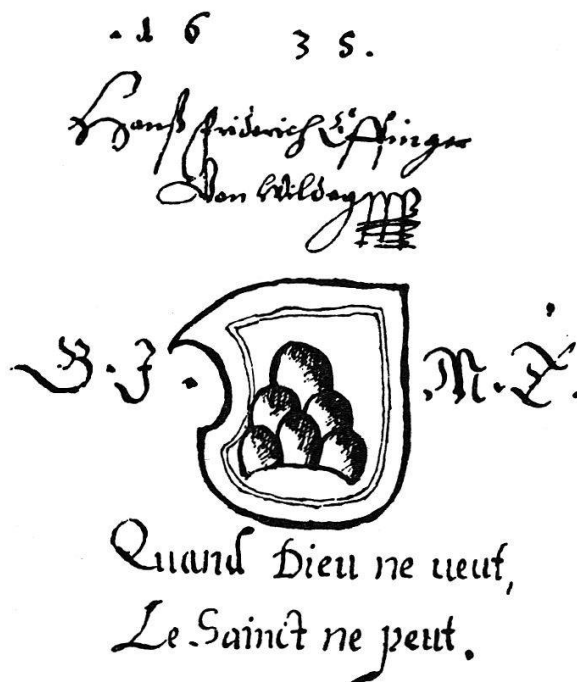 . 1 6 3 5 .
Hanß Friderich Effinger
Von Wildeg
G . J . M . E .
Quand Dieu ne ueut,
Le Sainct ne peut.